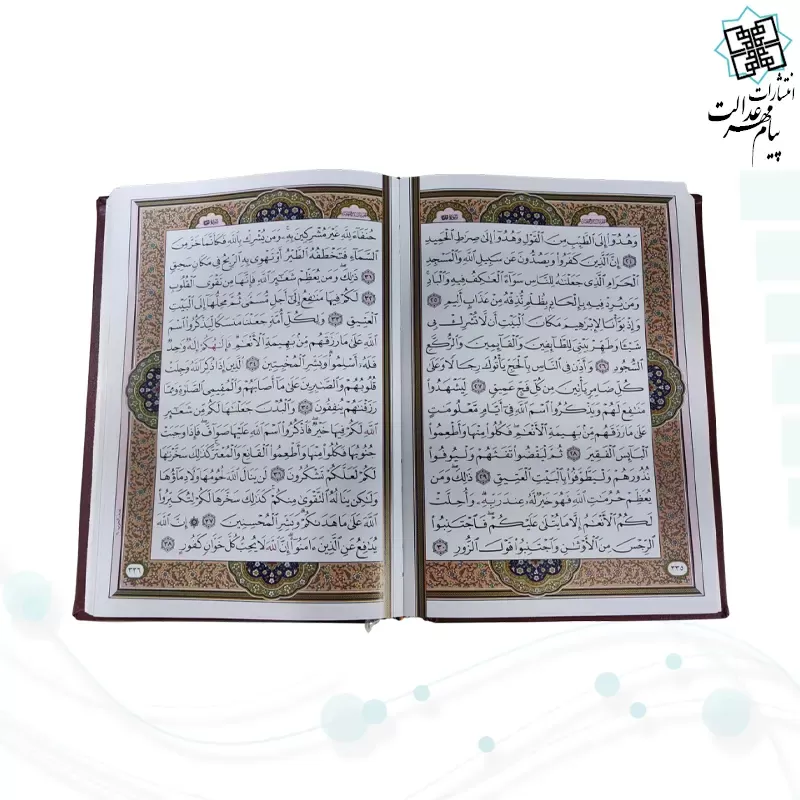 انتشارات
پیام مهر عدالت
وَهُدُوٓا۟ إِلَى ٱلطَّيِّبِ مِنَ ٱلْقَوْلِ وَهُدُوٓا۟ إِلَىٰ صِرَٰطِ ٱلْحَمِيدِ
﴿٢٤﴾ إِنَّ ٱلَّذِينَ كَفَرُوا۟ وَيَصُدُّونَ عَن سَبِيلِ ٱللَّهِ وَٱلْمَسْجِدِ
ٱلْحَرَامِ ٱلَّذِى جَعَلْنَٰهُ لِلنَّاسِ سَوَآءً ٱلْعَٰكِفُ فِيهِ وَٱلْبَادِ
وَمَن يُرِدْ فِيهِ بِإِلْحَادٍۭ بِظُلْمٍ نُّذِقْهُ مِنْ عَذَابٍ أَلِيمٍ ﴿٢٥﴾
وَإِذْ بَوَّأْنَا لِإِبْرَٰهِيمَ مَكَانَ ٱلْبَيْتِ أَن لَّا تُشْرِكْ بِى
شَيْـًٔا وَطَهِّرْ بَيْتِىَ لِلطَّآئِفِينَ وَٱلْقَآئِمِينَ وَٱلرُّكَّعِ
ٱلسُّجُودِ ﴿٢٦﴾ وَأَذِّن فِى ٱلنَّاسِ بِٱلْحَجِّ يَأْتُوكَ رِجَالًا وَعَلَىٰ
كُلِّ ضَامِرٍ يَأْتِينَ مِن كُلِّ فَجٍّ عَمِيقٍ ﴿٢٧﴾ لِّيَشْهَدُوا۟
مَنَٰفِعَ لَهُمْ وَيَذْكُرُوا۟ ٱسْمَ ٱللَّهِ فِىٓ أَيَّامٍ مَّعْلُومَٰتٍ
عَلَىٰ مَا رَزَقَهُم مِّنۢ بَهِيمَةِ ٱلْأَنْعَٰمِ ۖ فَكُلُوا۟ مِنْهَا وَأَطْعِمُوا۟
ٱلْبَآئِسَ ٱلْفَقِيرَ ﴿٢٨﴾ ثُمَّ لْيَقْضُوا۟ تَفَثَهُمْ وَلْيُوفُوا۟
نُذُورَهُمْ وَلْيَطَّوَّفُوا۟ بِٱلْبَيْتِ ٱلْعَتِيقِ ﴿٢٩﴾ ذَٰلِكَ وَمَن
يُعَظِّمْ حُرُمَٰتِ ٱللَّهِ فَهُوَ خَيْرٌ لَّهُۥ عِندَ رَبِّهِۦ ۗ وَأُحِلَّتْ
لَكُمُ ٱلْأَنْعَٰمُ إِلَّا مَا يُتْلَىٰ عَلَيْكُمْ ۖ فَٱجْتَنِبُوا۟
ٱلرِّجْسَ مِنَ ٱلْأَوْثَٰنِ وَٱجْتَنِبُوا۟ قَوْلَ ٱلزُّورِ ﴿٣٠﴾
٣٣٥
حُنَفَآءَ لِلَّهِ غَيْرَ مُشْرِكِينَ بِهِۦ ۚ وَمَن يُشْرِكْ بِٱللَّهِ فَكَأَنَّمَا خَرَّ مِنَ
ٱلسَّمَآءِ فَتَخْطَفُهُ ٱلطَّيْرُ أَوْ تَهْوِى بِهِ ٱلرِّيحُ فِى مَكَانٍ سَحِيقٍ
﴿٣١﴾ ذَٰلِكَ وَمَن يُعَظِّمْ شَعَٰٓئِرَ ٱللَّهِ فَإِنَّهَا مِن تَقْوَى ٱلْقُلُوبِ
﴿٣٢﴾ لَكُمْ فِيهَا مَنَٰفِعُ إِلَىٰٓ أَجَلٍ مُّسَمًّى ثُمَّ مَحِلُّهَآ إِلَى ٱلْبَيْتِ
ٱلْعَتِيقِ ﴿٣٣﴾ وَلِكُلِّ أُمَّةٍ جَعَلْنَا مَنسَكًا لِّيَذْكُرُوا۟ ٱسْمَ
ٱللَّهِ عَلَىٰ مَا رَزَقَهُم مِّنۢ بَهِيمَةِ ٱلْأَنْعَٰمِ ۗ فَإِلَٰهُكُمْ إِلَٰهٌ وَٰحِدٌ
فَلَهُۥٓ أَسْلِمُوا۟ ۗ وَبَشِّرِ ٱلْمُخْبِتِينَ ﴿٣٤﴾ ٱلَّذِينَ إِذَا ذُكِرَ ٱللَّهُ وَجِلَتْ
قُلُوبُهُمْ وَٱلصَّٰبِرِينَ عَلَىٰ مَآ أَصَابَهُمْ وَٱلْمُقِيمِى ٱلصَّلَوٰةِ وَمِمَّا
رَزَقْنَٰهُمْ يُنفِقُونَ ﴿٣٥﴾ وَٱلْبُدْنَ جَعَلْنَٰهَا لَكُم مِّن شَعَٰٓئِرِ
ٱللَّهِ لَكُمْ فِيهَا خَيْرٌ ۖ فَٱذْكُرُوا۟ ٱسْمَ ٱللَّهِ عَلَيْهَا صَوَآفَّ ۖ فَإِذَا وَجَبَتْ
جُنُوبُهَا فَكُلُوا۟ مِنْهَا وَأَطْعِمُوا۟ ٱلْقَانِعَ وَٱلْمُعْتَرَّ ۚ كَذَٰلِكَ سَخَّرْنَٰهَا
لَكُمْ لَعَلَّكُمْ تَشْكُرُونَ ﴿٣٦﴾ لَن يَنَالَ ٱللَّهَ لُحُومُهَا وَلَا دِمَآؤُهَا
وَلَٰكِن يَنَالُهُ ٱلتَّقْوَىٰ مِنكُمْ ۚ كَذَٰلِكَ سَخَّرَهَا لَكُمْ لِتُكَبِّرُوا۟
ٱللَّهَ عَلَىٰ مَا هَدَىٰكُمْ ۗ وَبَشِّرِ ٱلْمُحْسِنِينَ ﴿٣٧﴾ ۞ إِنَّ ٱللَّهَ
يُدَٰفِعُ عَنِ ٱلَّذِينَ ءَامَنُوٓا۟ ۗ إِنَّ ٱللَّهَ لَا يُحِبُّ كُلَّ خَوَّانٍ كَفُورٍ ﴿٣٨﴾
٣٣٦